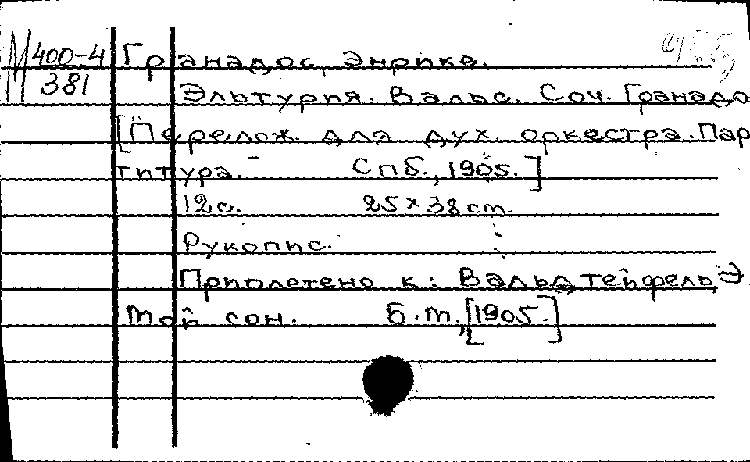 М 400-4
381
Гранадос, Энрике.
Эльтурия. Вальс. Соч. Гранадо
[Перелож. для дух. оркестра. Пар
титура. - Спб., 1905.]
12с. 25 x 38 cm.
Рукопис.
Приплетено к: Вальдтейфель, Э.
Мой сон. Б.м., [1905.]